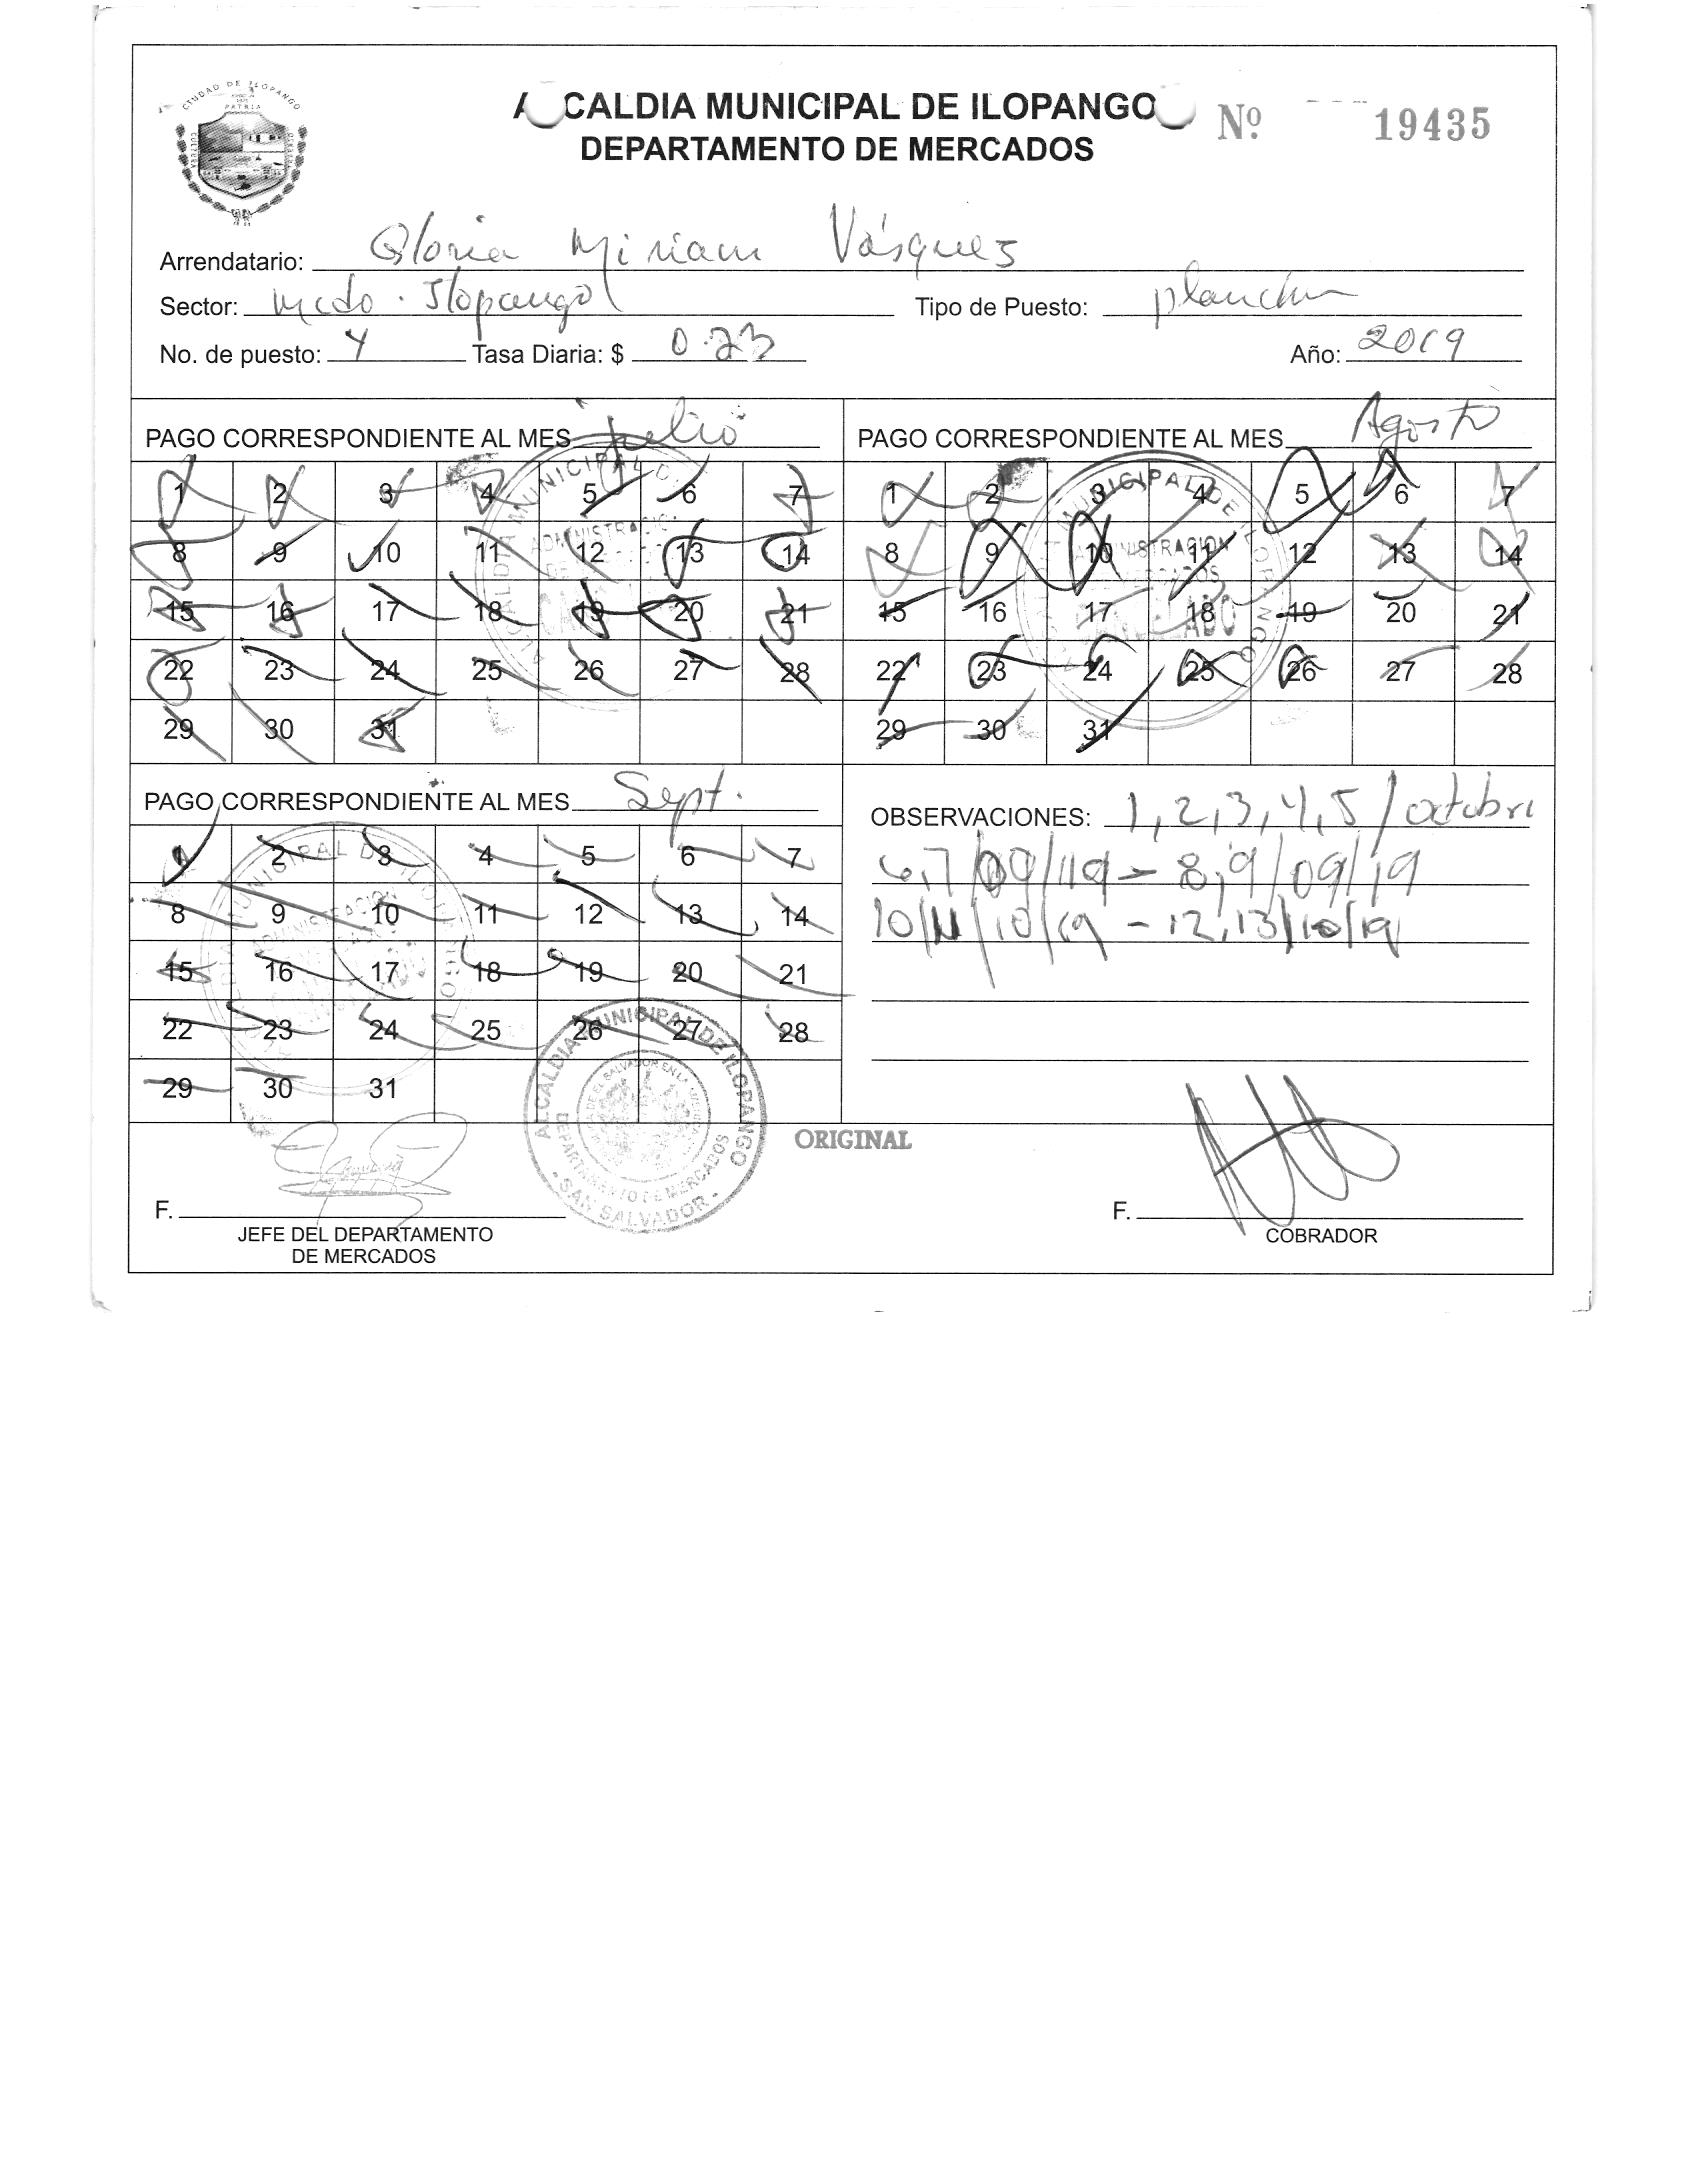 CIUDAD DE ILOPANGO
PATRIA
ALCALDIA MUNICIPAL DE ILOPANGO
Nº 19435
DEPARTAMENTO DE MERCADOS
Arrendatario: Gloria Miriam Vásquez
Sector: Mcdo. Ilopango
Tipo de Puesto: plancha
No. de puesto: 4 Tasa Diaria: $ 0.23 Año: 2019
PAGO CORRESPONDIENTE AL MES julio
1 2 3 4 5 6 7
8 9 10 11 12 13 14
15 16 17 18 19 20 21
22 23 24 25 26 27 28
29 30 31
PAGO CORRESPONDIENTE AL MES Agosto
1 2 3 4 5 6 7
8 9 10 11 12 13 14
15 16 17 18 19 20 21
22 23 24 25 26 27 28
29 30 31
PAGO CORRESPONDIENTE AL MES Sept.
1 2 3 4 5 6 7
8 9 10 11 12 13 14
15 16 17 18 19 20 21
22 23 24 25 26 27 28
29 30 31
OBSERVACIONES: 1, 2, 3, 4, 5 / octubre
6,7/09/19 - 8,9/09/19
10/11/10/19 - 12,13/10/19
ALCALDIA MUNICIPAL DE ILOPANGO
DEPARTAMENTO DE MERCADOS
- SAN SALVADOR -
ORIGINAL
F.
JEFE DEL DEPARTAMENTO
DE MERCADOS
F.
COBRADOR